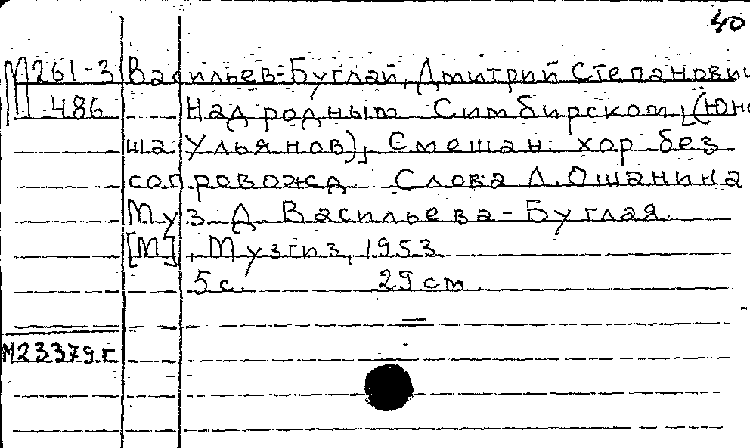 40
М261-3 Васильев-Буглай, Дмитрий Степанович
486 Над родным Симбирском, (Юно-
ша Ульянов), Смешан. хор без
сопровожд. Слова Л. Ошанина
Муз. Д. Васильева-Буглая.
[М], Музгиз, 1953.
5 с. 29 см.
М23379г.